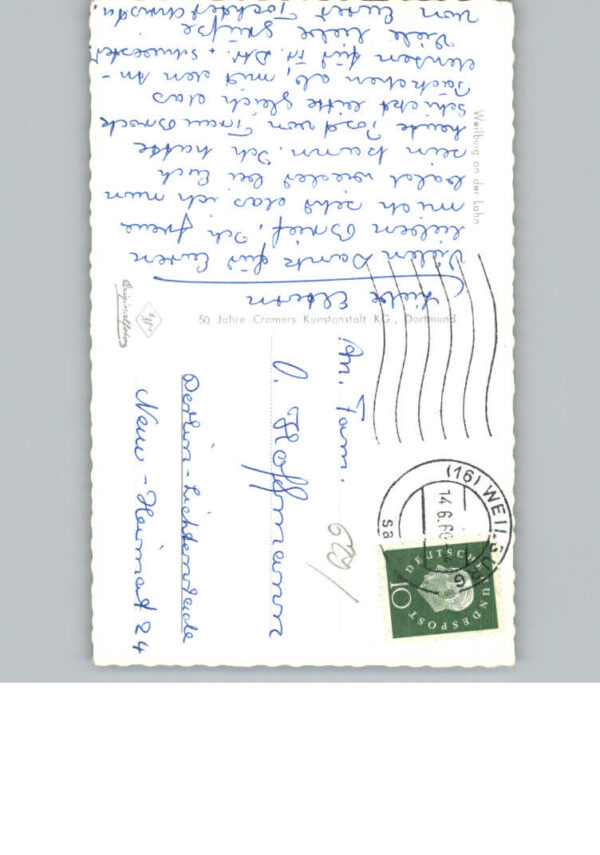 Liebe Eltern
Vielen Dank für Euren
lieben Brief, Ich freue
mich sehr das ich nun
bald wieder bei Euch
sein kann. Ich hatte
heute Post von Frau
schickt bitte gleich das
Päckchen ab, mit den An-
denken für
Viele liebe Grüße
von Eurer Tochter
Weilburg an der Lahn
50 Jahre Cramers Kunstanstalt KG., Dortmund
Originalfoto
An. Fam.
O. Hoffmann
Berlin-Lichtenrade
Neue-Heimat 24
(16) WEILBURG
14.6.60
DEUTSCHE BUNDESPOST
10